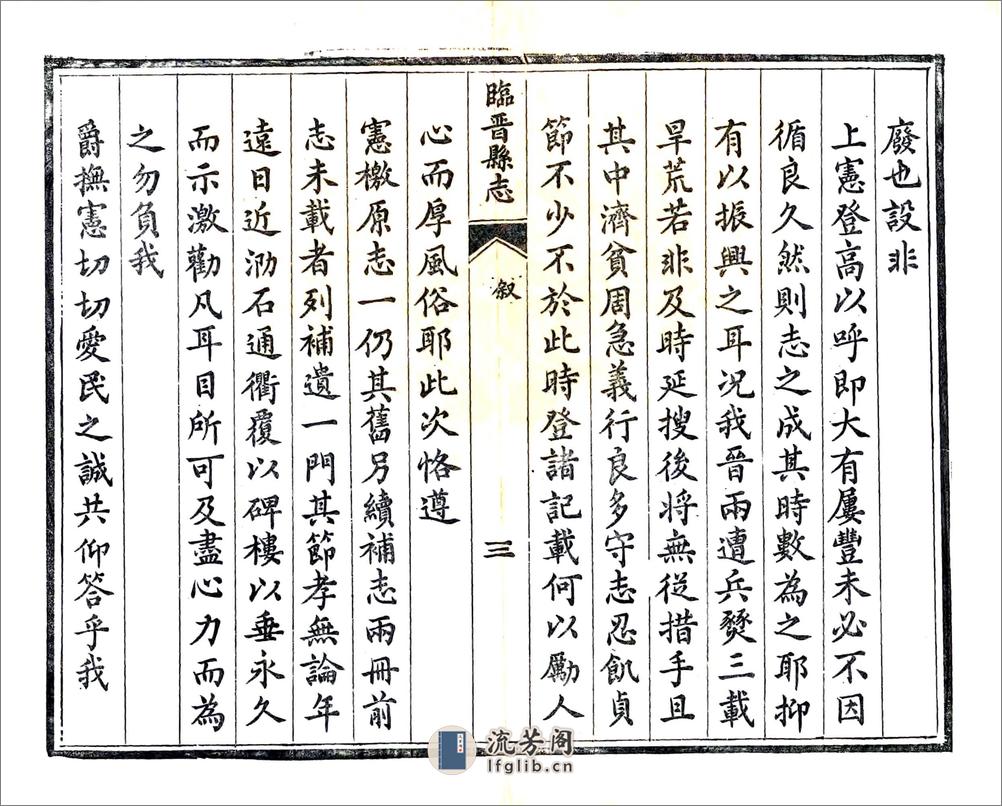 廢也設非
上憲登高以呼即大有屢豐未必不因
循良久然則志之成其時數為之耶抑
有以振興之耳况我晉兩遭兵燹三載
旱荒若非及時延搜後將無從措手且
其中濟貧周急義行良多守志忍飢貞
節不少不於此時登諸記載何以勵人
臨晉縣志
叙
三
心而厚風俗耶此次恪遵
憲檄原志一仍其舊另續補志兩冊前
志未載者列補遺一門其節孝無論年
遠日近泐石通衢覆以碑樓以垂永久
而示激勸凡耳目所可及盡心力而為
之勿負我
爵撫憲切切愛民之誠共仰答乎我
流芳阁
lfglib.cn